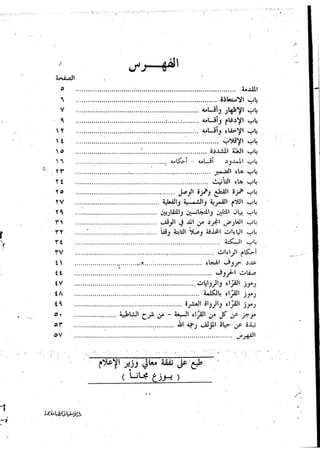 الفهــرس
الصفحة
المقدمة ٥
باب الاستعاذة ٦
باب الإظهار وأقسامه ٧
باب الإدغام وأقسامه ٩
باب الإخفاء وأقسامه ١٢
باب الإقلاب ١٤
باب الغنة المشددة ١٥
باب الممدود أقسامه – أحكامه ١٦
باب هاء الضمير ٢٣
باب هاء التأنيث ٢٤
باب همزة القطع وهمزة الوصل ٢٥
باب اللام القمرية والشمسية والفعلية ٢٧
باب بيان المثلين والمتجانسين والمتقاربين ٢٩
باب العارض المجرد من المد في الوقف ٣١
باب الياءات المحذفة وصلاً الثابتة وقفاً ٣٢
باب السكتة ٣٤
أحكام الراءات ٣٧
عدد حروف الهجاء ٤١
صفات الحروف ٤٤
رموز القراء والروايات ٤٧
رموز القراء بالكلمة ٤٨
رموز القراء والرواة العشرة ٤٩
موجز عن كل من القراء السبعة – من شرح الشاطبية ٥٠
نبذة عن حياة المؤلف رحمه الله ٥٣
الفهرس ٥٧
طبع على نفقة معالي وزير الإعلام
( يوزع مجاناً )